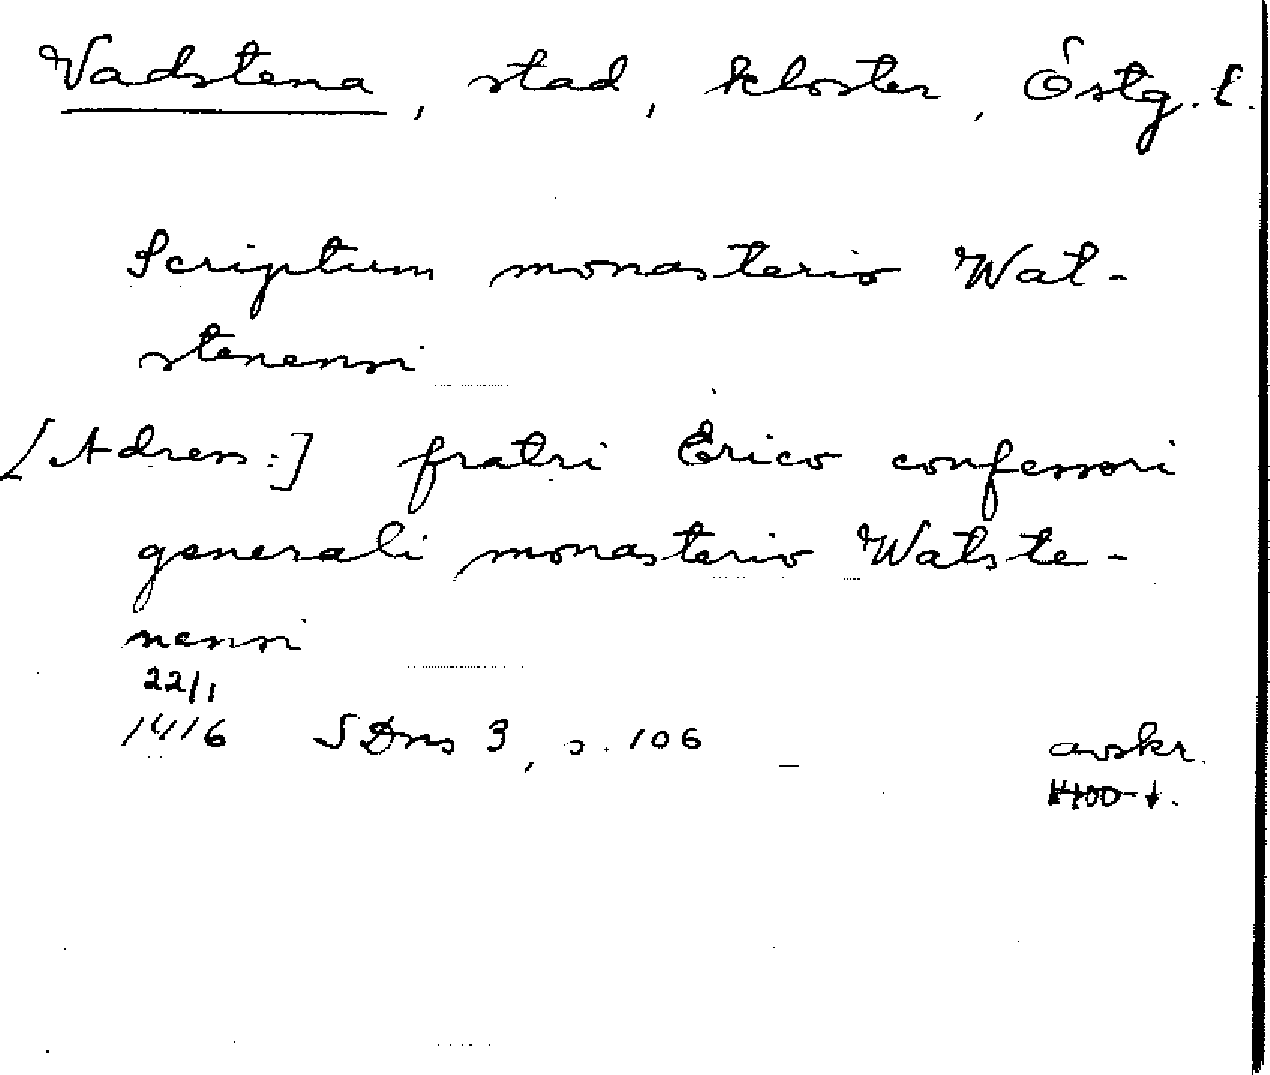 Vadstena, stad, kloster, Östg. l.
Scriptum monasterio Wat-
stenensi
[Adress:] fratri Erico confessori
generali monasterio Watste-
nensi
22/1
1416 SDns 3, s. 106 avskr.
1400-t.